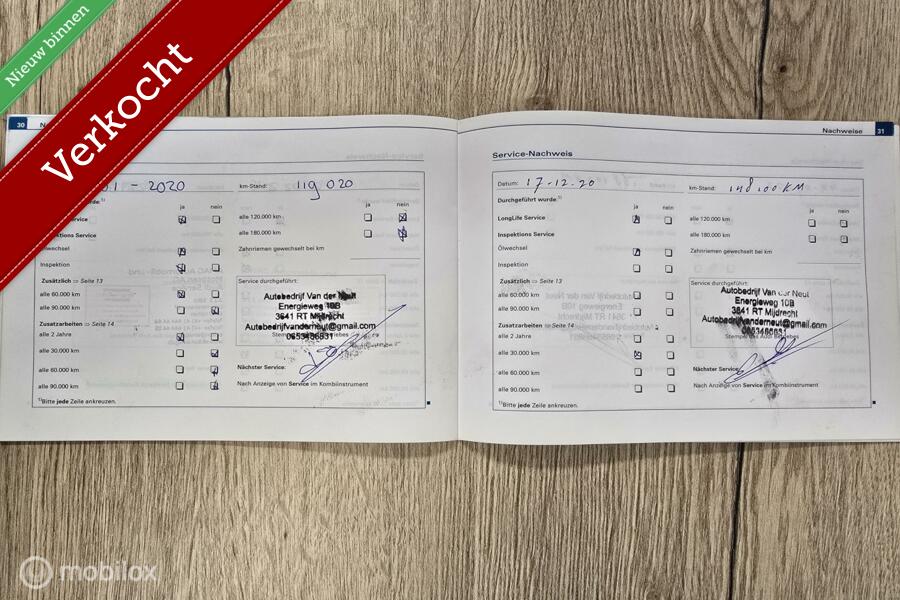 Nieuw binnen
Verkocht
30
01 - 2020
km-Stand: 119 020
ja nein
ja nein
alle 120.000 km
alle 180.000 km
Inspektions Service
Ölwechsel
Zahnriemen gewechselt bei km
Inspektion
Zusätzlich ⇨ Seite 13
Service durchgeführt:
alle 60.000 km
alle 90.000 km
Autobedrijf Van der Neut
Energieweg 10B
3641 RT Mijdrecht
Autobedrijfvanderneut@gmail.com
Zusatzarbeiten ⇨ Seite 14
alle 2 Jahre
alle 30.000 km
alle 60.000 km
Nächster Service:
alle 90.000 km
Nach Anzeige von Service im Kombiinstrument
1) Bitte jede Zeile ankreuzen.
Nachweise 31
Service-Nachweis
Datum: 17-12-20
km-Stand:
Durchgeführt wurde: 1)
ja nein
ja nein
LongLife Service
alle 120.000 km
Inspektions Service
alle 180.000 km
Ölwechsel
Zahnriemen gewechselt bei km
Inspektion
Zusätzlich ⇨ Seite 13
Service durchgeführt:
alle 60.000 km
alle 90.000 km
Autobedrijf Van der Neut
Energieweg 10B
3641 RT Mijdrecht
Autobedrijfvanderneut@gmail.com
Zusatzarbeiten ⇨ Seite 14
alle 2 Jahre
alle 30.000 km
alle 60.000 km
Nächster Service:
alle 90.000 km
Nach Anzeige von Service im Kombiinstrument
1) Bitte jede Zeile ankreuzen.
mobilox